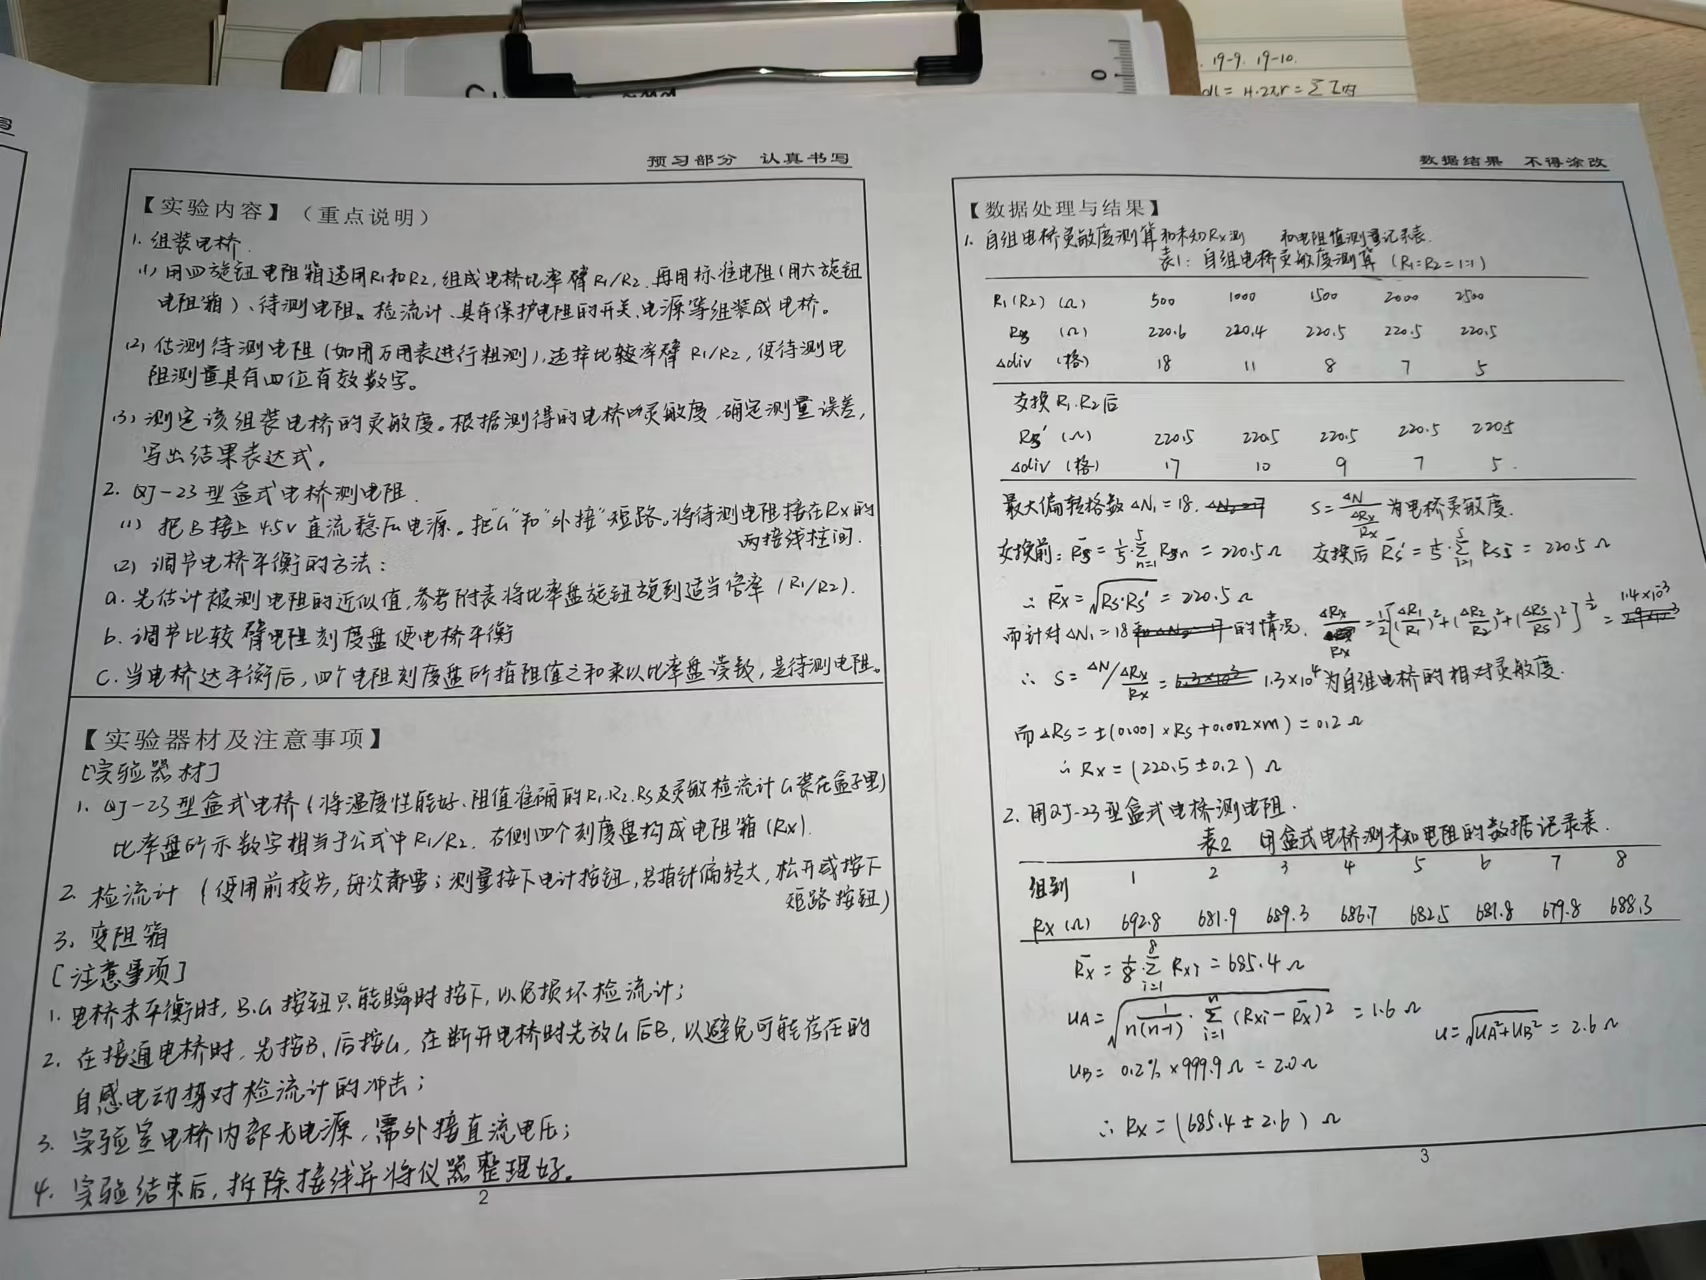 19-9. 19-10.
dl = H·2πr = ΣI内
0
写
预习部分 认真书写
【实验内容】（重点说明）
1. 组装电桥.
(1) 用四旋钮电阻箱适用R1和R2, 组成电桥比率臂R1/R2. 再用标准电阻(用六旋钮
电阻箱)、待测电阻、检流计、具有保护电阻的开关、电源等组装成电桥。
(2) 估测待测电阻(如用万用表进行粗测), 选择比较率臂 R1/R2, 使待测电
阻测量具有四位有效数字。
(3) 测定该组装电桥的灵敏度。根据测得的电桥的灵敏度, 确定测量误差,
写出结果表达式。
2. QJ-23型盒式电桥测电阻.
(1) 把B接上4.5V直流稳压电源。把"G"和"外接"短路。将待测电阻接在Rx的
两接线柱间.
(2) 调节电桥平衡的方法:
a. 先估计被测电阻的近似值, 参考附表将比率盘旋钮旋到适当倍率(R1/R2).
b. 调节比较臂电阻刻度盘使电桥平衡
c. 当电桥达平衡后, 四个电阻刻度盘所指阻值之和乘以比率盘读数, 是待测电阻。
【实验器材及注意事项】
[实验器材]
1. QJ-23型盒式电桥(将温度性能好、阻值准确的R1.R2.Rs及灵敏检流计G装在盒子里)
比率盘所示数字相当于公式中R1/R2. 右侧四个刻度盘构成电阻箱(Rx).
2. 检流计 (使用前校
测量按下电计按钮, 若指针偏转大, 松开或按下
短路按钮)
3. 变阻箱
[注意事项]
1. 电桥未平衡时, B.G按钮只能瞬时按下, 以免损坏检流计;
2. 在接通电桥时, 先按B, 后按G, 在断开电桥时先放G后B, 以避免可能存在的
自感电动势对检流计的冲击;
3. 实验室电桥内部无电源, 需外接直流电压;
4. 实验结束后, 拆除接线并将仪器整理好。
2
数据结果 不得涂改
【数据处理与结果】
1. 自组电桥灵敏度测算和未知Rx测 和电阻值测量记录表.
表1: 自组电桥灵敏度测算 (R1=R2=1:1)
R1(R2) (Ω) 500 1000 1500 2000 2500
Rs (Ω) 220.6 220.4 220.5 220.5 220.5
Δdiv (格) 18 11 8 7 5
交换R1.R2后
Rs' (Ω) 220.5 220.5 220.5 220.5 220.5
Δdiv (格) 17 10 9 7 5.
最大偏转格数ΔN1=18. S=ΔN/(ΔRx/Rx) 为电桥灵敏度.
交换前: R̄s = 1/5·Σ(n=1→5) Rsn = 220.5Ω 交换后 R̄s' = 1/5·Σ(i=1→5) Rsi = 220.5 Ω
∴ R̄x = √(Rs·Rs') = 220.5Ω
而针对ΔN1=18的情况, ΔRx/Rx = 1/2[(ΔR1/R1)²+(ΔR2/R2)²+(ΔRs/Rs)²]^(1/2) = 1.4×10⁻³
∴ S = ΔN/(ΔRx/Rx) = 1.3×10⁴为自组电桥的相对灵敏度.
而ΔRs=±(0.001×Rs+0.002×m)=0.2Ω
∴ Rx = (220.5±0.2) Ω
2. 用QJ-23型盒式电桥测电阻.
表2 用盒式电桥测未知电阻的数据记录表.
组别 1 2 3 4 5 6 7 8
Rx (Ω) 692.8 681.9 689.3 686.7 682.5 681.8 679.8 688.3
R̄x = 1/8·Σ(i=1→8) Rxi = 685.4 Ω
uA = √(1/(n(n-1))·Σ(i=1→n)(Rxi-R̄x)²) = 1.6Ω u=√(uA²+uB²) = 2.6Ω
uB = 0.2%×999.9Ω = 2.0Ω
∴ Rx = (685.4±2.6) Ω
3